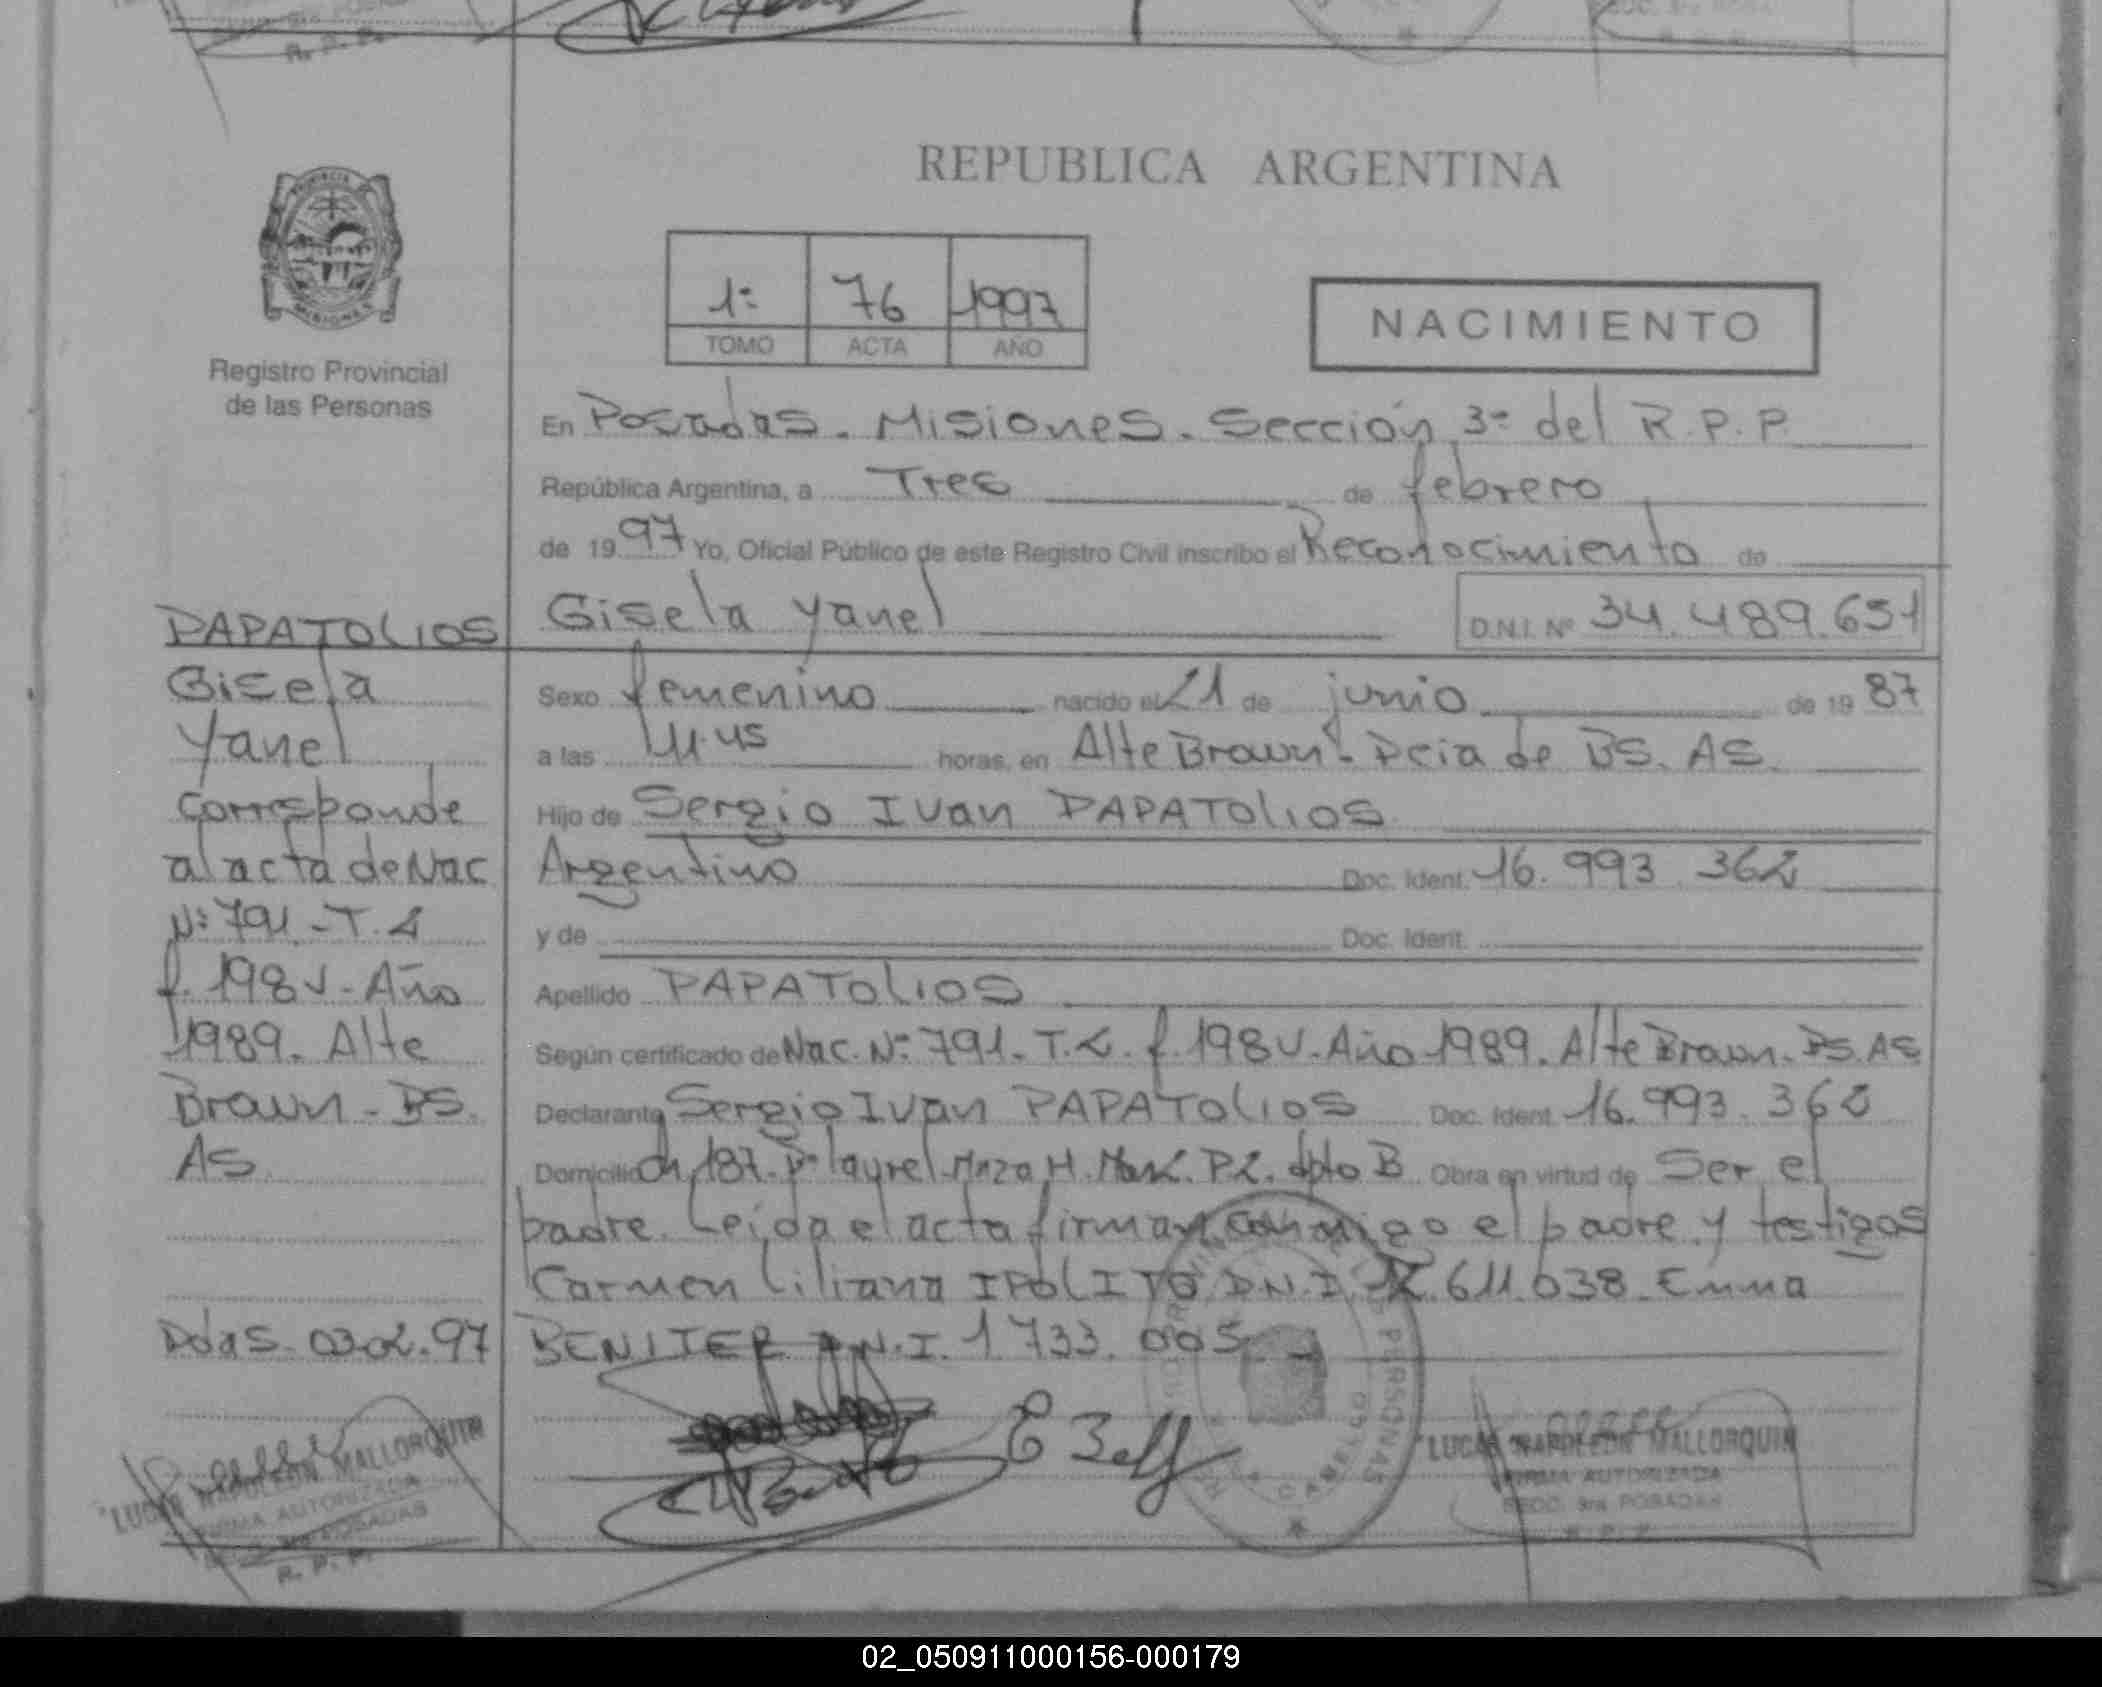 REPUBLICA ARGENTINA
PROVINCIA DE
MISIONES
Registro Provincial
de las Personas
1º 76 1997
TOMO ACTA AÑO
NACIMIENTO
En Posadas. Misiones. Sección 3ª del R.P.P.
República Argentina, a Tres de febrero
de 1997 Yo, Oficial Público de este Registro Civil inscribo el Reconocimiento de
Gisela Yanel D.N.I. Nº 34.489.651
Sexo femenino nacido el 21 de junio de 1987
a las 11.45 horas, en Alte Brown - Pcia de BS. AS.
Hijo de Sergio Ivan PAPATOLIOS
Argentino Doc. Ident. 16.993.362
y de Doc. Ident.
Apellido PAPATOLIOS
Según certificado de Nac. Nº 791. T.2. f. 198 V. Año 1989. Alte Brown. BS. AS
Declarante Sergio Ivan PAPATOLIOS Doc. Ident. 16.993.362
Domicilio Ch 187. Bº laurel. Mnza H. P2. dpto B Obra en virtud de Ser el
padre. Leida el acta firman conmigo el padre y testigos
Carmen Liliana IPOLITO D.N.I. 611.038. Emma
BENITEZ D.N.I. 1733.005
PAPATOLIOS
Gisela
Yanel
Corresponde
al acta de Nac
Nº 791 - T. 2
f. 198 V - Año
1989. Alte
Brown - BS.
AS
Pdas. 03.02.97
LUCAS NAPOLEON MALLORQUIN
FIRMA AUTORIZADA
3ra POSADAS
R. P. P.
PERSONAS
CABELLO
LUCAS NAPOLEON MALLORQUIN
FIRMA AUTORIZADA
SECC. 3ra POSADAS
R. P. P.
02_050911000156-000179